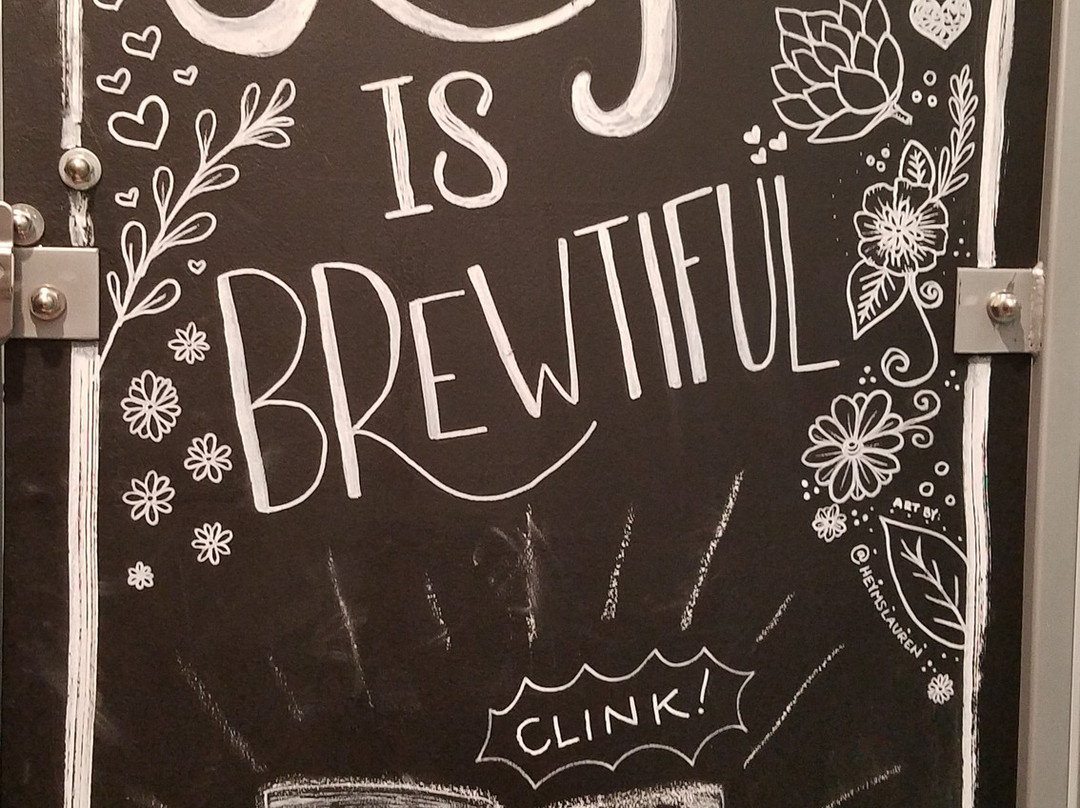 IS
BREWTIFUL
ART BY:
@HEIMSLAUREN
CLINK!